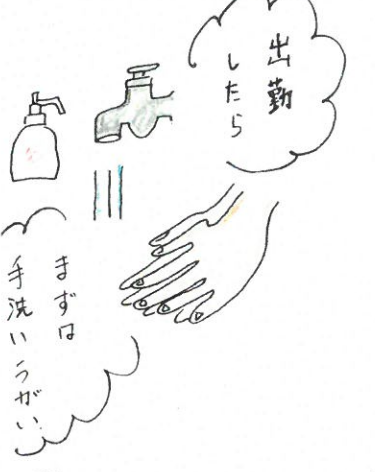 出勤
したら
まずは
手洗いうがい